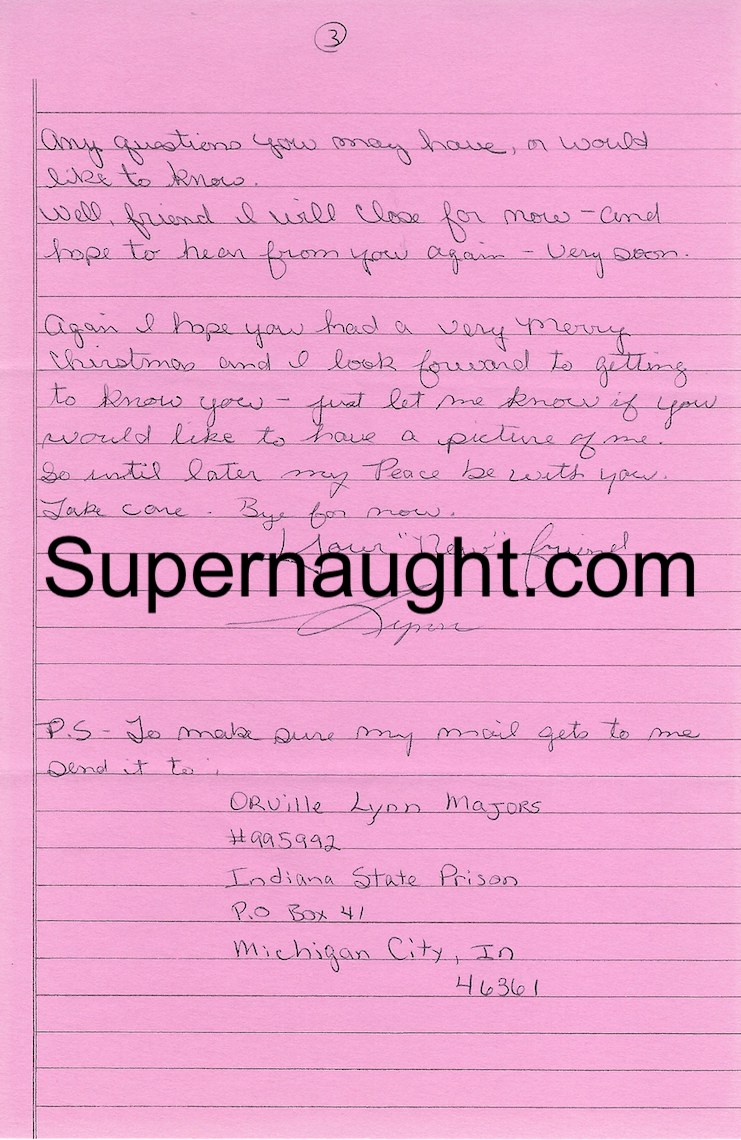 3
Any questions you may have, or would
like to know.
Well, friend I will close for now - and
hope to hear from you again - very soon.
Again I hope you had a very Merry
Chirstmas and I look forward to getting
to know you - just let me know if you
would like to have a picture of me.
So until later my Peace be with you.
Take care. Bye for now.
Your "New" friend
Supernaught.com
Lynn
P.S - To make sure my mail gets to me
send it to:
ORVille Lynn MAJORS
#995992
Indiana State Prison
P.O Box 41
Michigan City, In
46361